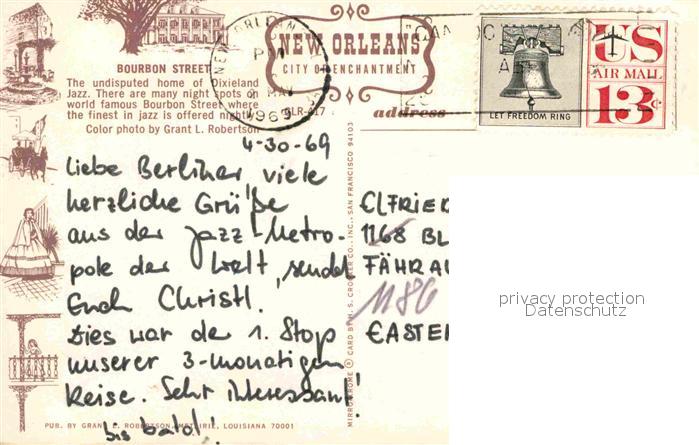 BOURBON STREET
The undisputed home of Dixieland
Jazz. There are many night spots on
world famous Bourbon Street where
the finest in jazz is offered nightly.
Color photo by Grant L. Robertson
NEW ORLEANS
CITY OF ENCHANTMENT
GLR-417
address
NEW ORLEANS
PM
MAY
1969
LET FREEDOM RING
US
AIR MAIL
13c
4-30-69
Liebe Berliner viele
herzliche Grüße
aus der Jazz-Metro-
pole der Welt, sendet
Euch Christl.
Dies war der 1. Stop
unserer 3-monatigen
Reise. Sehr interessant!
bis bald!
MIRRO-KROME ® CARD BY H. S. CROCKER CO., INC., SAN FRANCISCO 94103
CLFRIED
1168 BL
FÄHRAL
1186
EASTER
PUB. BY GRANT L. ROBERTSON, METAIRIE, LOUISIANA 70001
privacy protection
Datenschutz